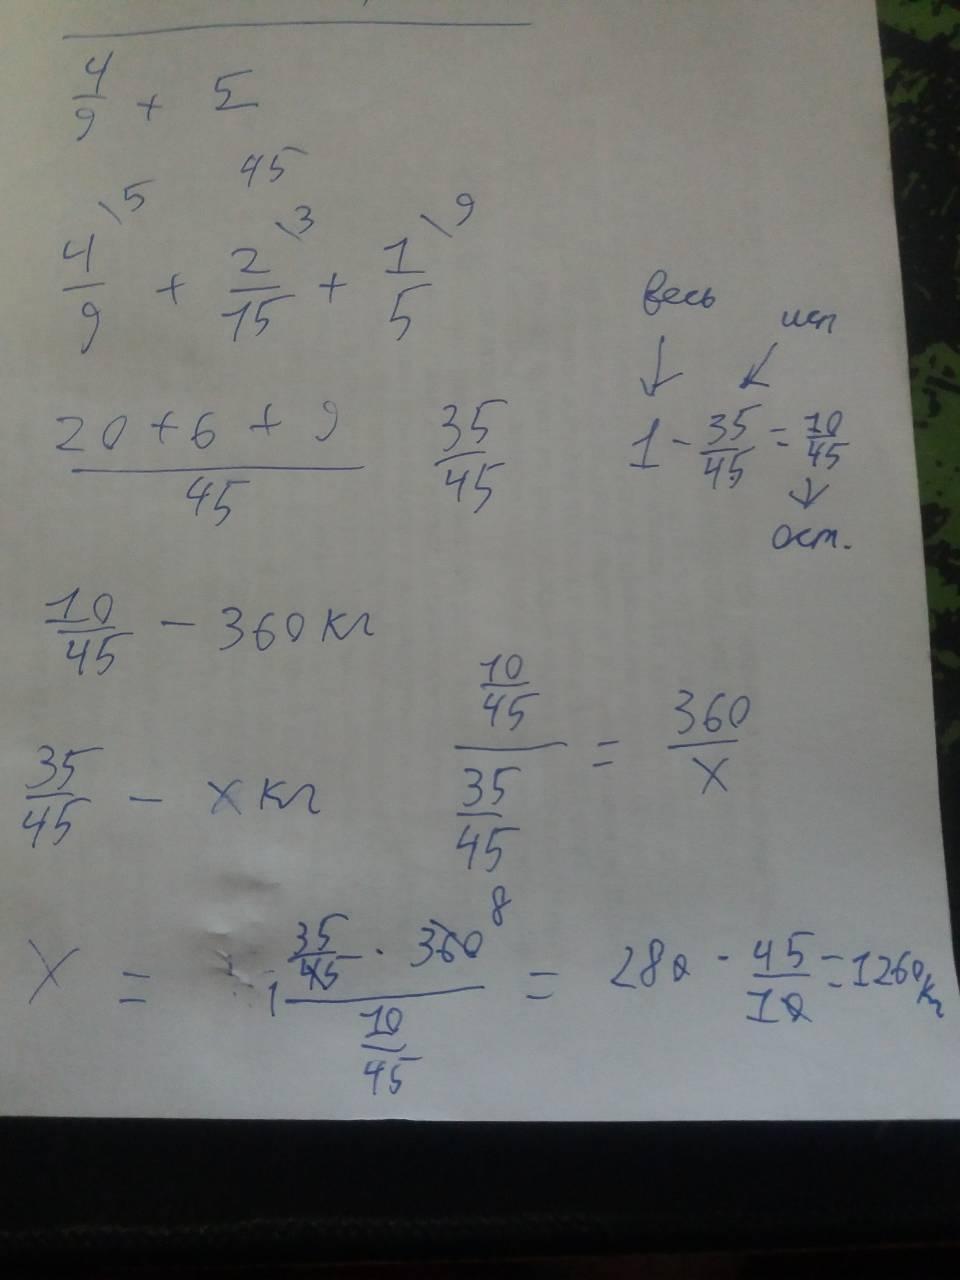 4/9 + 5
45
4/9 \5 + 2/15 \3 + 1/5 \9
весь
исп
(20 + 6 + 9)/45 35/45
1 - 35/45 = 10/45
ост.
10/45 - 360 кг
35/45 - x кг
(10/45)/(35/45) = 360/x
8
x = (35/45 · 360)/(10/45) = 280 · 45/10 = 1260 кг